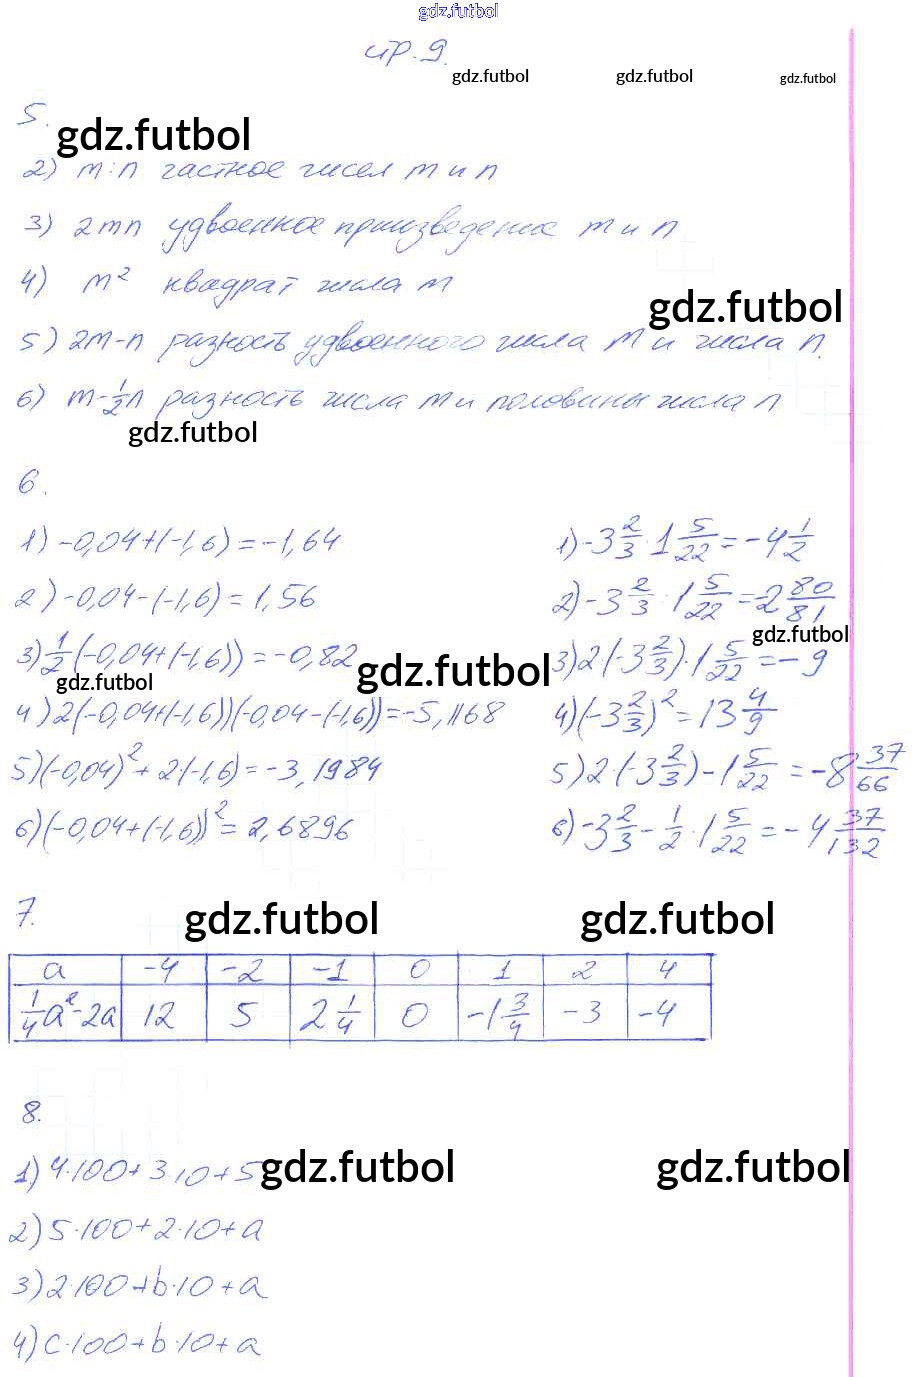 gdz.futbol
стр. 9.
gdz.futbol gdz.futbol gdz.futbol
5.
gdz.futbol
2) m:n частное чисел m и n
3) 2mn удвоенное произведение m и n
4) m² квадрат числа m
gdz.futbol
5) 2m-n разность удвоенного числа m и числа n.
6) m-1/2n разность числа m и половины числа n
gdz.futbol
6.
1) -0,04+(-1,6)=-1,64
2) -0,04-(-1,6)=1,56
3) 1/2(-0,04+(-1,6))=-0,82
gdz.futbol
gdz.futbol
4) 2(-0,04+(-1,6))(-0,04-(-1,6))=-5,1168
5) (-0,04)²+2(-1,6)=-3,1984
6) (-0,04+(-1,6))²=2,6896
1) -3 2/3·1 5/22=-4 1/2
2) -3 2/3:1 5/22=-2 80/81
gdz.futbol
3) 2(-3 2/3)·1 5/22=-9
4) (-3 2/3)²=13 4/9
5) 2·(-3 2/3)-1 5/22=-8 37/66
6) -3 2/3-1/2·1 5/22=-4 37/132
7.
gdz.futbol gdz.futbol
a -4 -2 -1 0 1 2 4
1/4a²-2a 12 5 2 1/4 0 -1 3/4 -3 -4
8.
1) 4·100+3·10+5
gdz.futbol gdz.futbol
2) 5·100+2·10+a
3) 2·100+b·10+a
4) c·100+b·10+a